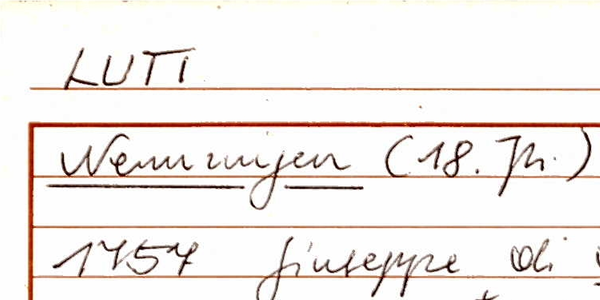 LUTI
Wemmingen (18. Jh.)
1757 Giuseppe di